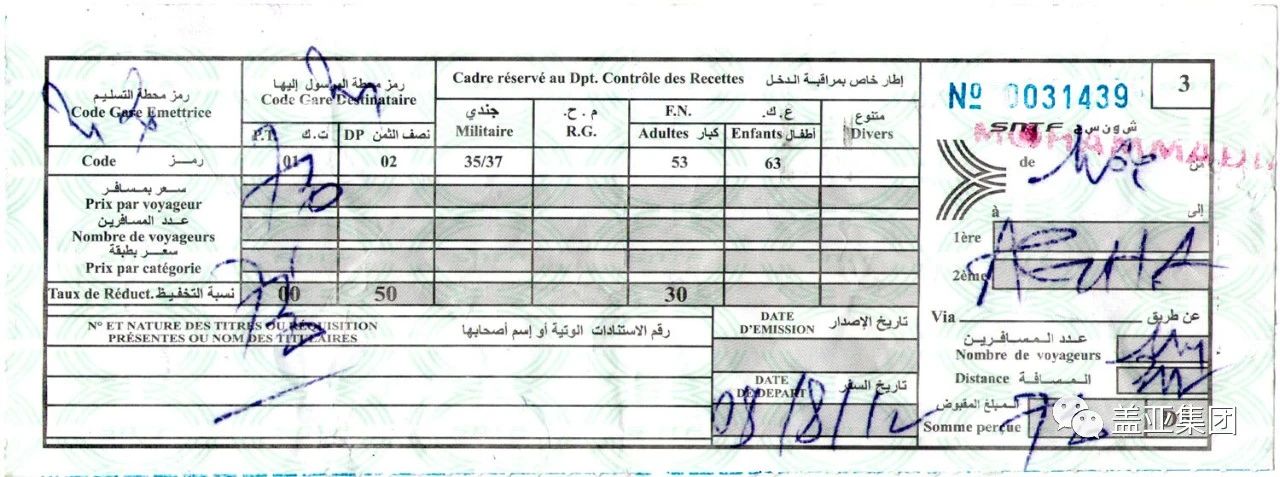 رمز محطة التسليم
Code Gare Emettrice
رمز محطة المرسول إليها
Code Gare Destinataire
P.T. ت.ك
DP نصف الثمن
Cadre réservé au Dpt. Contrôle des Recettes إطار خاص بمراقبة الدخل
جندي
Militaire
م.ح.
R.G.
F.N. ع.ك.
Adultes كبار
Enfants أطفال
متنوع
Divers
Code رمز
01
02
35/37
53
63
سعر بمسافر
Prix par voyageur
730
عدد المسافرين
Nombre de voyageurs
سعر بطبقة
Prix par catégorie
Taux de Réduct. نسبة التخفيظ
00
50
30
N° ET NATURE DES TITRES OU RÉQUISITION
PRÉSENTES OU NOM DES TITULAIRES
رقم الاستنادات الوتية أو إسم أصحابها
DATE
D'EMISSION
تاريخ الإصدار
DATE
DE DEPART
تاريخ السفر
08/8/12
3
Nº 0031439
SNTF ش و ن س ح
MOHAMMADIA
de
من
à
إلى
1ère
2ème
Via
عن طريق
عدد المسافرين
Nombre de voyageurs
Distance المسافة
المبلغ المقبوض
Somme perçue
盖亚集团